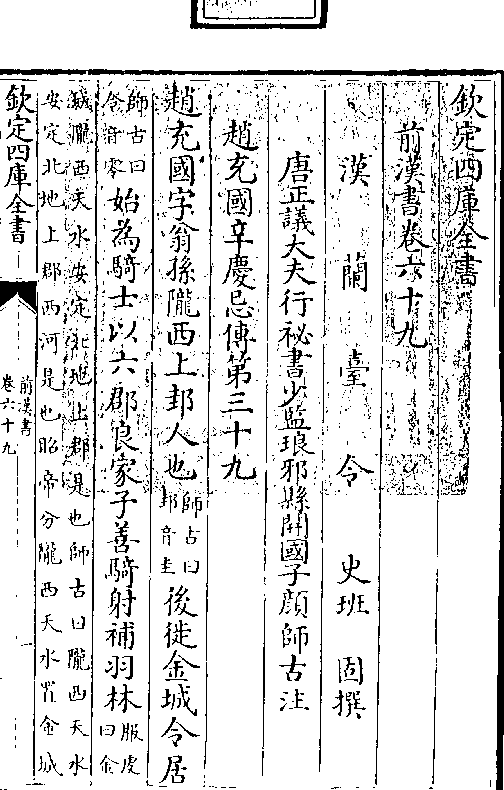 欽定四庫全書
前漢書卷六十九
漢蘭臺令史班固撰
唐正議大夫行祕書少監琅邪縣開國子顏師古注
趙充國辛慶忌傳第三十九
趙充國字翁孫隴西上邽人也師古曰邽音圭後徙金城令居
師古曰令音零始為騎士以六郡良家子善騎射補羽林服虔曰金
城隴西天水安定北地上郡是也師古曰隴西天水
安定北地上郡西河是也昭帝分隴西天水置金城
欽定四庫全書
前漢書
卷六十九